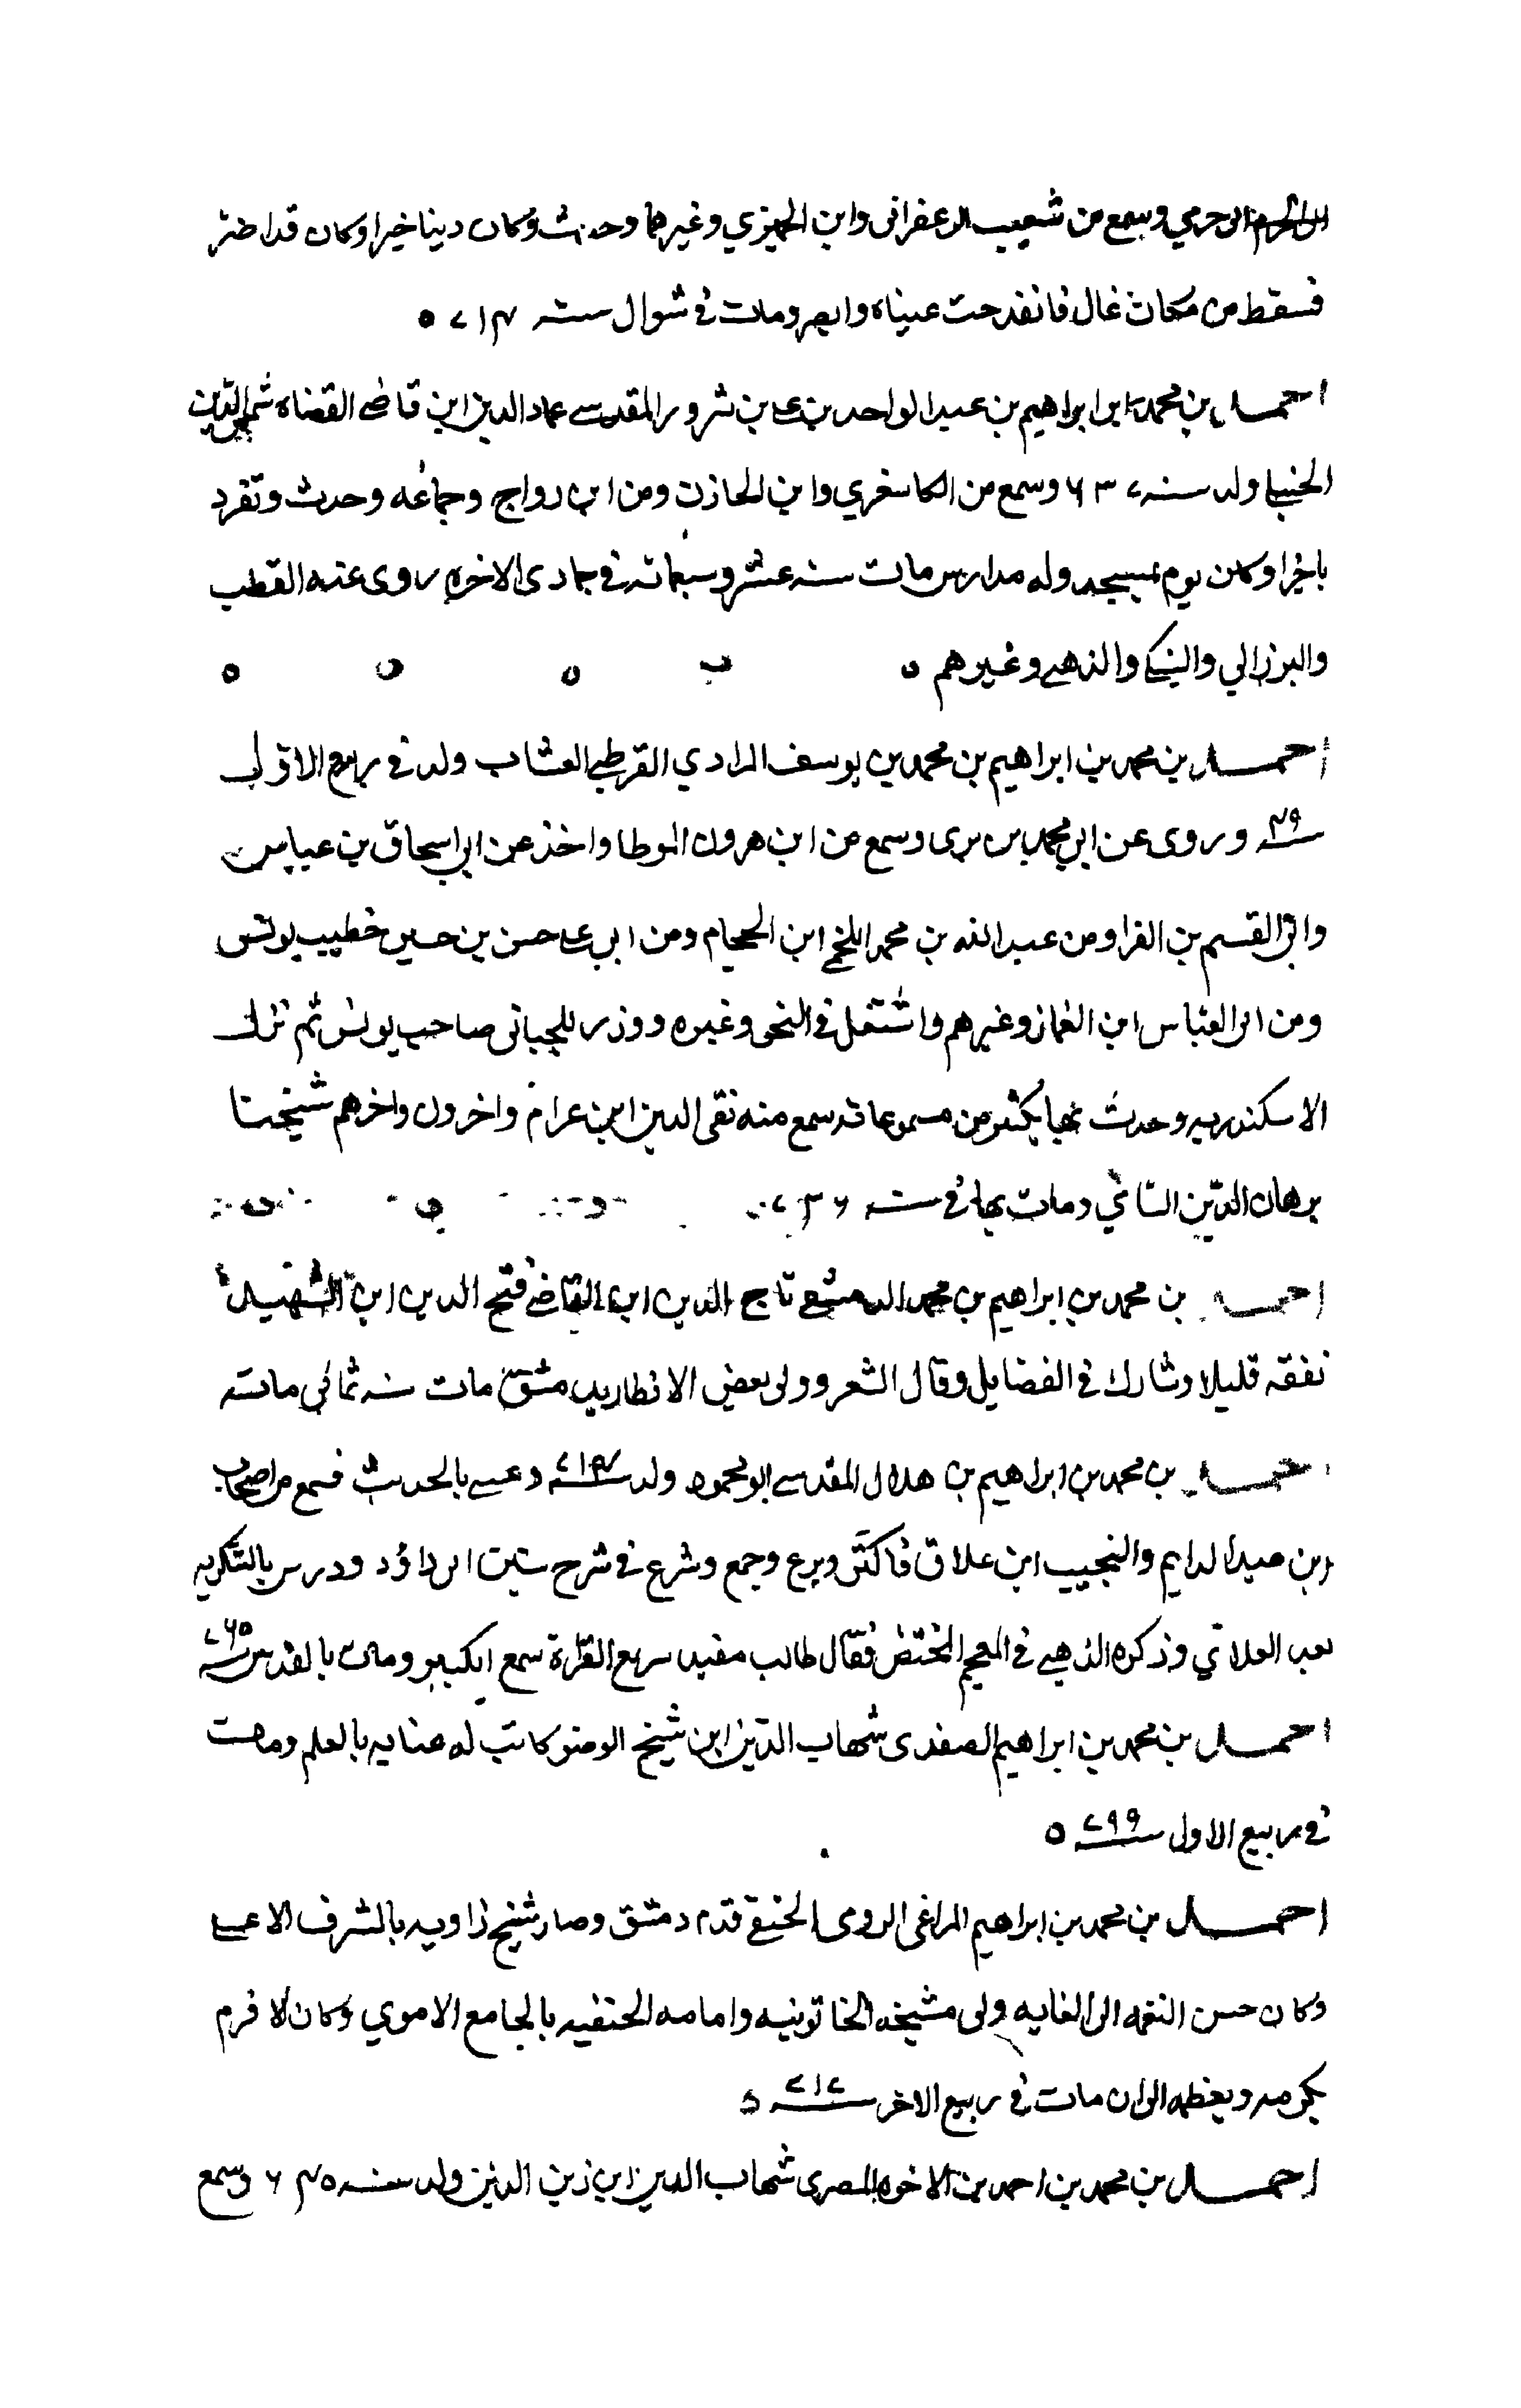 ابن ابى حرمي وسمع من شعيب الزعفرانى وابن الجميزي وغيرهما وحدث وكان دينا خيرا وكان قد اضر
فسقط من مكان عال فانقدحت عيناه وابصر ومات في شوال سنه ٧١٤ ٥
احمد بن محمد بن ابراهيم بن عبد الواحد بن على بن سرور المقدسى عماد الدين ابن قاضى القضاه شمس الدين
الحنبلى ولد سنه ٦٣٧ وسمع من الكاشغري وابن الخازن ومن ابن رواج وجماعه وحدث وتفرد
باخرا وكان يوم بمسجد وله مدارس مات سنه عشر وسبعمائه في جمادى الاخره روى عنه القطب
والبرزالي والسبكي والذهبي وغيرهم ٥
احمد بن محمد بن ابراهيم بن محمد بن يوسف المرادي القرطبي العشاب ولد في ربيع الاول
سنه ٤٩ وروى عن ابى محمد بن برى وسمع من ابن هرون الموطا واخذ عن ابى اسحاق بن عياش
وابى القسم بن الفرا ومن عبد الله بن محمد اللخمى ابن الحجام ومن ابى على حسن بن حسين خطيب تونس
ومن ابى العباس ابن الغماز وغيرهم واشتغل في النحو وغيره ووزر للحيانى صاحب تونس ثم نزل
الاسكندريه وحدث بها بكثير من مسموعاته سمع منه تقى الدين ابن عرام واخرون واخرهم شيخنا
برهان الدين الشامي ومات بها في سنه ٧٣٦
احمد بن محمد بن ابراهيم بن محمد الدمشقى تاج الدين ابن القاضى فتح الدين ابن الشهيد
تفقه قليلا وشارك في الفضايل وقال الشعر وولى بعض الانظار بدمشق مات سنه ثماني مائة
احمد بن محمد بن ابراهيم بن هلال المقدسى ابو محمود ولد سنه ٧١٤ وعنى بالحديث فسمع من اصحاب
ابن عبد الدايم والنجيب ابن علاق فاكثر وبرع وجمع وشرع في شرح سنن ابى داؤد ودرس بالتنكزيه
بعد العلائي وذكره الذهبي في المعجم المختص فقال طالب مفيد سريع القراة سمع الكثير ومات بالقدس سنه ٧٦٥
احمد بن محمد بن ابراهيم الصفدى شهاب الدين ابن شيخ الوضو كاتب له عنايه بالعلم ومات
في ربيع الاول سنه ٧٩٩ ٥
احمد بن محمد بن ابراهيم المراغى الرومى الحنفى قدم دمشق وصار شيخ زاويه بالشرف الاعلى
وكان حسن النغمه الى الغايه وولى مشيخه الخاتونيه وامامه الحنفيه بالجامع الاموي وكان الافرم
يكرمه ويعظمه الى ان مات في ربيع الاخر سنه ٧١٧ ٥
احمد بن محمد بن احمد بن الاخوه المصرى شهاب الدين ابن زين الدين ولد سنه ٦٤٥ وسمع